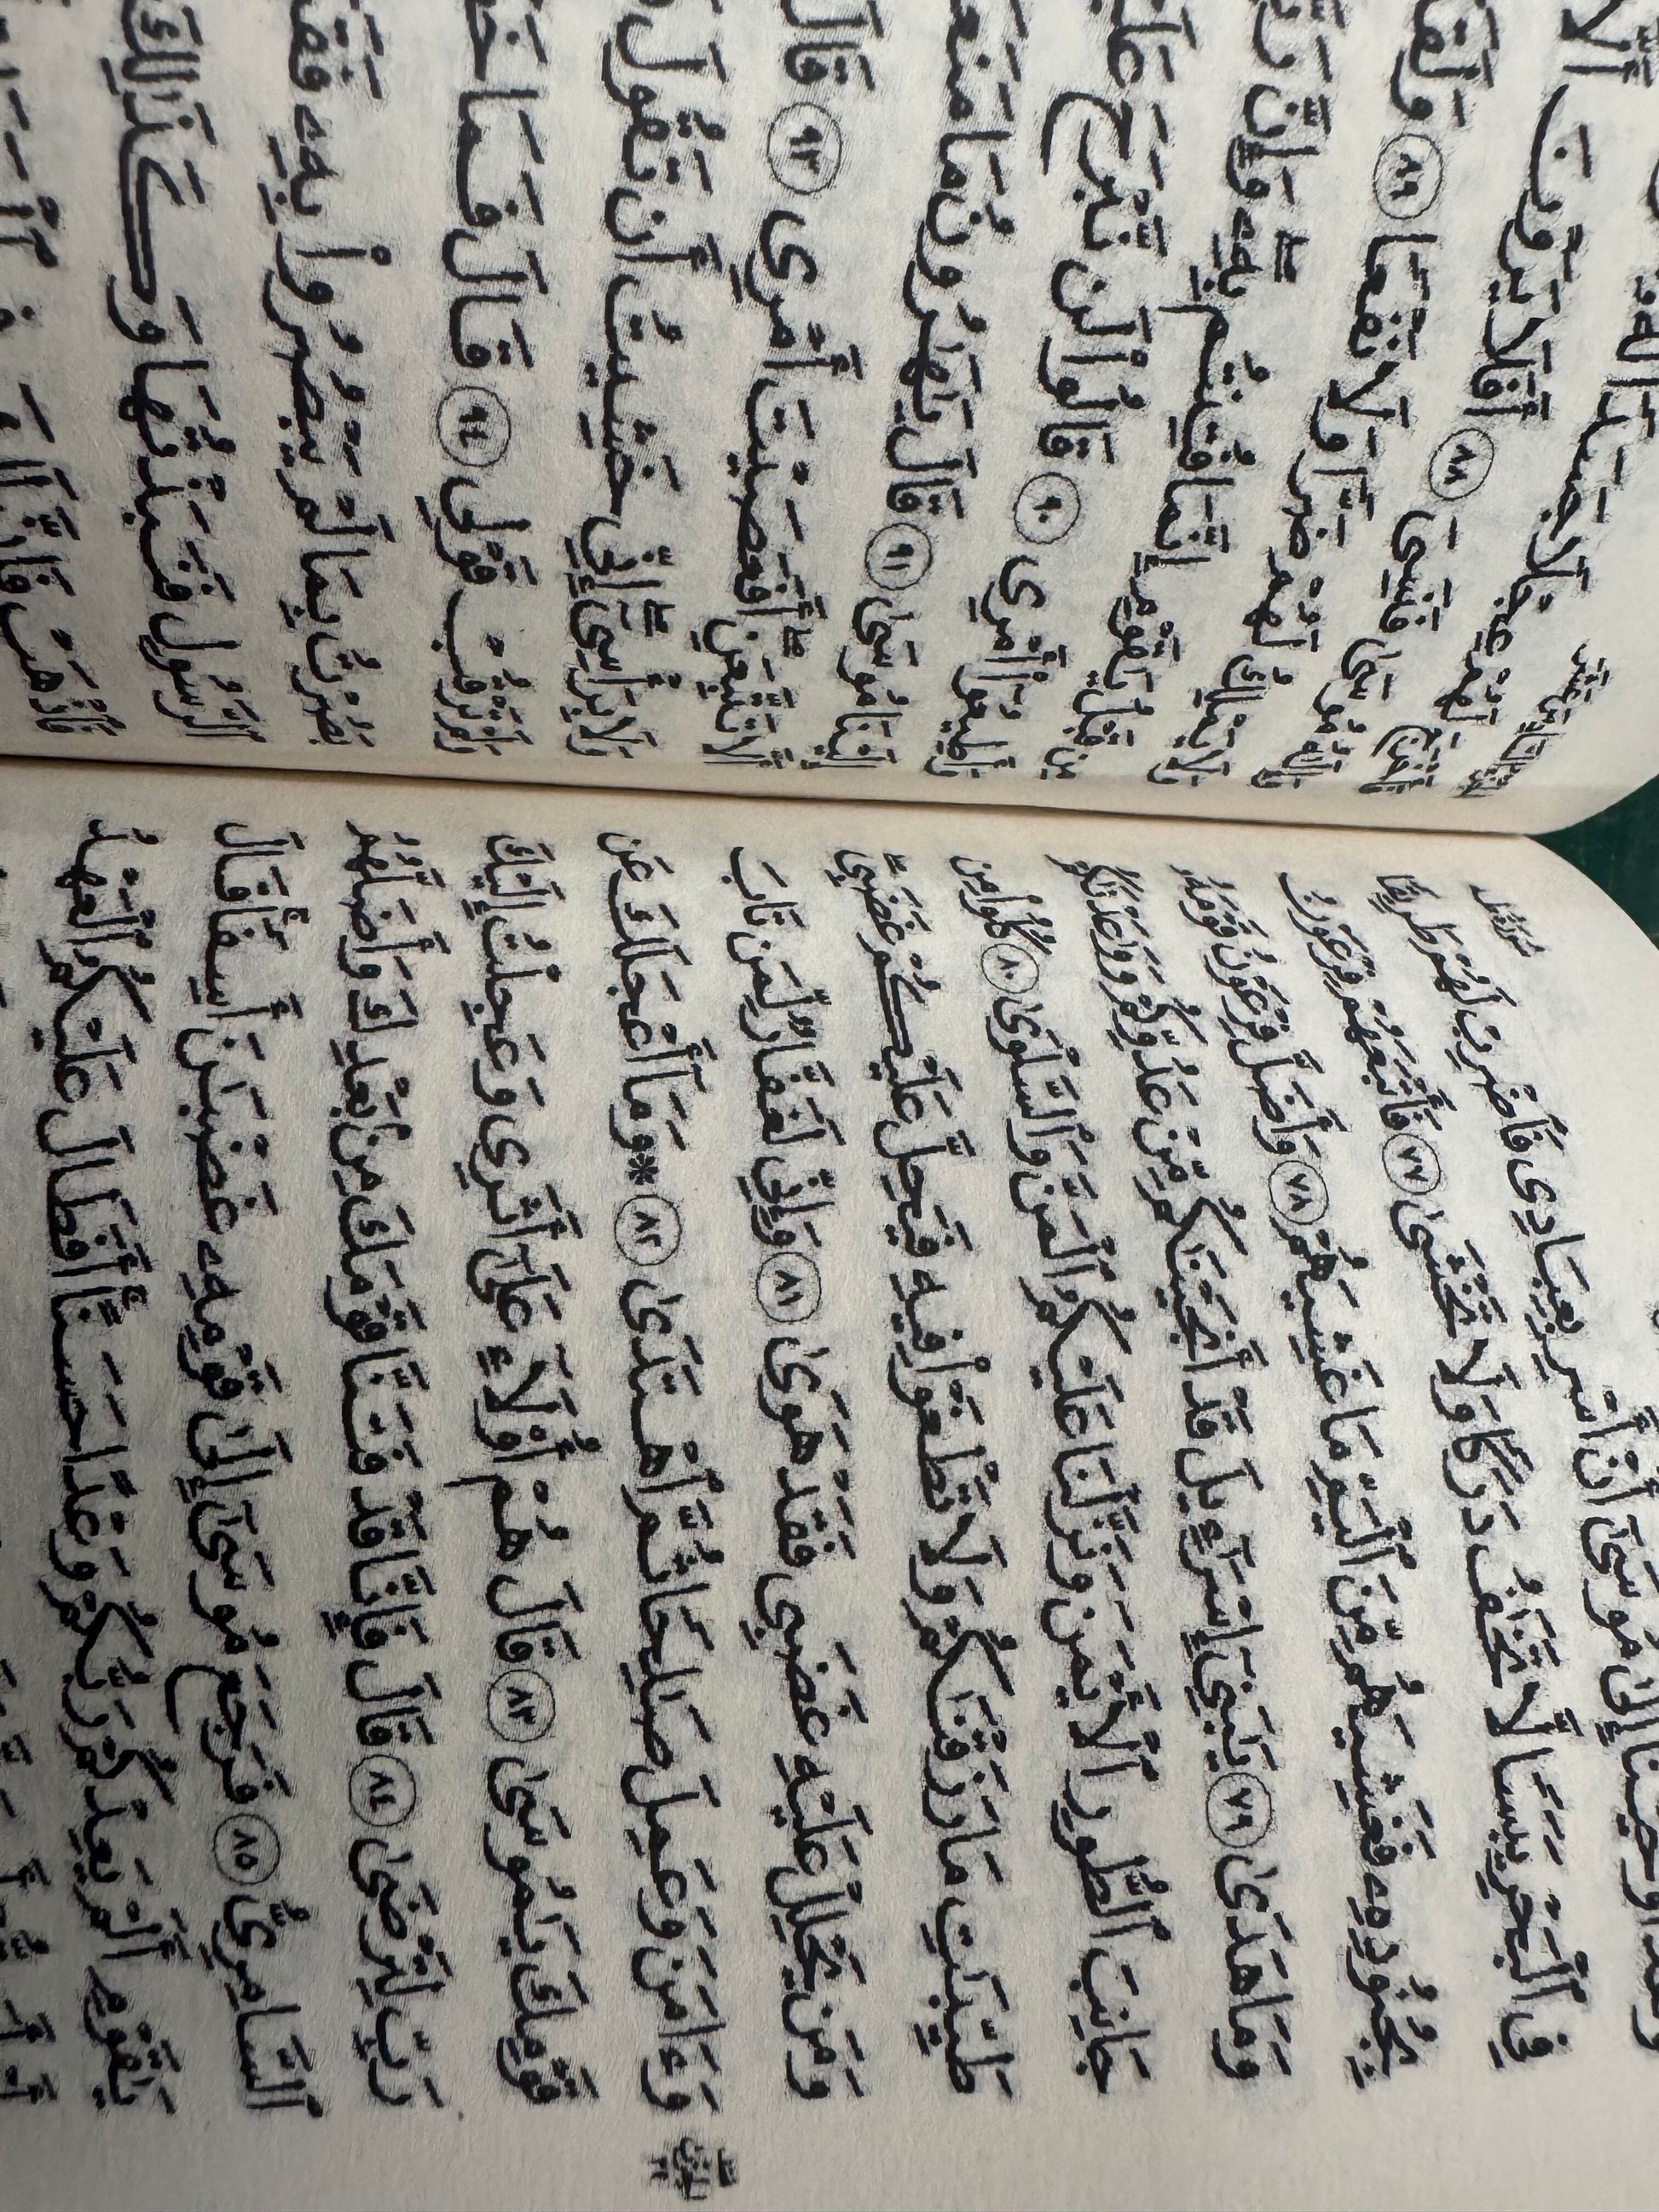 سُورَةُ طه
وَلَقَدْ أَوْحَيْنَآ إِلَىٰ مُوسَىٰٓ أَنْ أَسْرِ بِعِبَادِى فَٱضْرِبْ لَهُمْ طَرِيقًا
فِى ٱلْبَحْرِ يَبَسًا لَّا تَخَٰفُ دَرَكًا وَلَا تَخْشَىٰ ٧٧ فَأَتْبَعَهُمْ فِرْعَوْنُ
بِجُنُودِهِۦ فَغَشِيَهُم مِّنَ ٱلْيَمِّ مَا غَشِيَهُمْ ٧٨ وَأَضَلَّ فِرْعَوْنُ قَوْمَهُۥ
وَمَا هَدَىٰ ٧٩ يَٰبَنِىٓ إِسْرَٰٓءِيلَ قَدْ أَنجَيْنَٰكُم مِّنْ عَدُوِّكُمْ وَوَٰعَدْنَٰكُمْ
جَانِبَ ٱلطُّورِ ٱلْأَيْمَنَ وَنَزَّلْنَا عَلَيْكُمُ ٱلْمَنَّ وَٱلسَّلْوَىٰ ٨٠ كُلُوا۟ مِن
طَيِّبَٰتِ مَا رَزَقْنَٰكُمْ وَلَا تَطْغَوْا۟ فِيهِ فَيَحِلَّ عَلَيْكُمْ غَضَبِى
وَمَن يَحْلِلْ عَلَيْهِ غَضَبِى فَقَدْ هَوَىٰ ٨١ وَإِنِّى لَغَفَّارٌ لِّمَن تَابَ
وَءَامَنَ وَعَمِلَ صَٰلِحًا ثُمَّ ٱهْتَدَىٰ ٨٢ * وَمَآ أَعْجَلَكَ عَن
قَوْمِكَ يَٰمُوسَىٰ ٨٣ قَالَ هُمْ أُو۟لَآءِ عَلَىٰٓ أَثَرِى وَعَجِلْتُ إِلَيْكَ
رَبِّ لِتَرْضَىٰ ٨٤ قَالَ فَإِنَّا قَدْ فَتَنَّا قَوْمَكَ مِنۢ بَعْدِكَ وَأَضَلَّهُمُ
ٱلسَّامِرِىُّ ٨٥ فَرَجَعَ مُوسَىٰٓ إِلَىٰ قَوْمِهِۦ غَضْبَٰنَ أَسِفًا ۚ قَالَ
يَٰقَوْمِ أَلَمْ يَعِدْكُمْ رَبُّكُمْ وَعْدًا حَسَنًا ۚ أَفَطَالَ عَلَيْكُمُ ٱلْعَهْدُ
فَأَخْرَجَ لَهُمْ عِجْلًا جَسَدًا لَّهُۥ
وَإِلَٰهُ مُوسَىٰ فَنَسِىَ ٨٨ أَفَلَا يَرَوْنَ أَلَّا
وَلَا يَمْلِكُ لَهُمْ ضَرًّا وَلَا نَفْعًا ٨٩ وَلَقَ
مِن قَبْلُ يَٰقَوْمِ إِنَّمَا فُتِنتُم بِهِۦ ۖ وَإِنَّ رَ
وَأَطِيعُوٓا۟ أَمْرِى ٩٠ قَالُوا۟ لَن نَّبْرَحَ عَلَيْ
إِلَيْنَا مُوسَىٰ ٩١ قَالَ يَٰهَٰرُونُ مَا مَنَعَ
أَلَّا تَتَّبِعَنِ ۖ أَفَعَصَيْتَ أَمْرِى ٩٣ قَالَ
وَلَا بِرَأْسِىٓ ۖ إِنِّى خَشِيتُ أَن تَقُولَ
وَلَمْ تَرْقُبْ قَوْلِى ٩٤ قَالَ فَمَا خَ
بَصُرْتُ بِمَا لَمْ يَبْصُرُوا۟ بِهِۦ فَقَ
ٱلرَّسُولِ فَنَبَذْتُهَا وَكَذَٰلِكَ
فَٱذْهَبْ فَإِنَّ